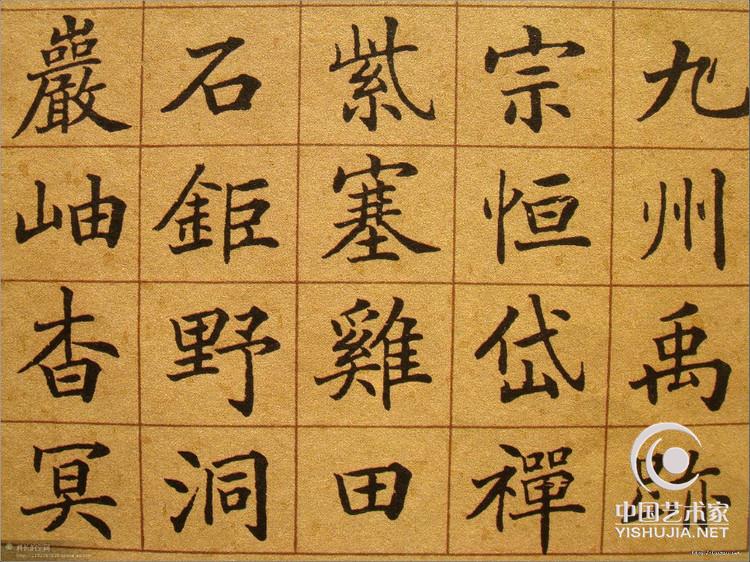 九州禹跡
宗恒岱禪
紫塞雞田
石鉅野洞
巖岫杳冥
中国艺术家
YISHUJIA.NET